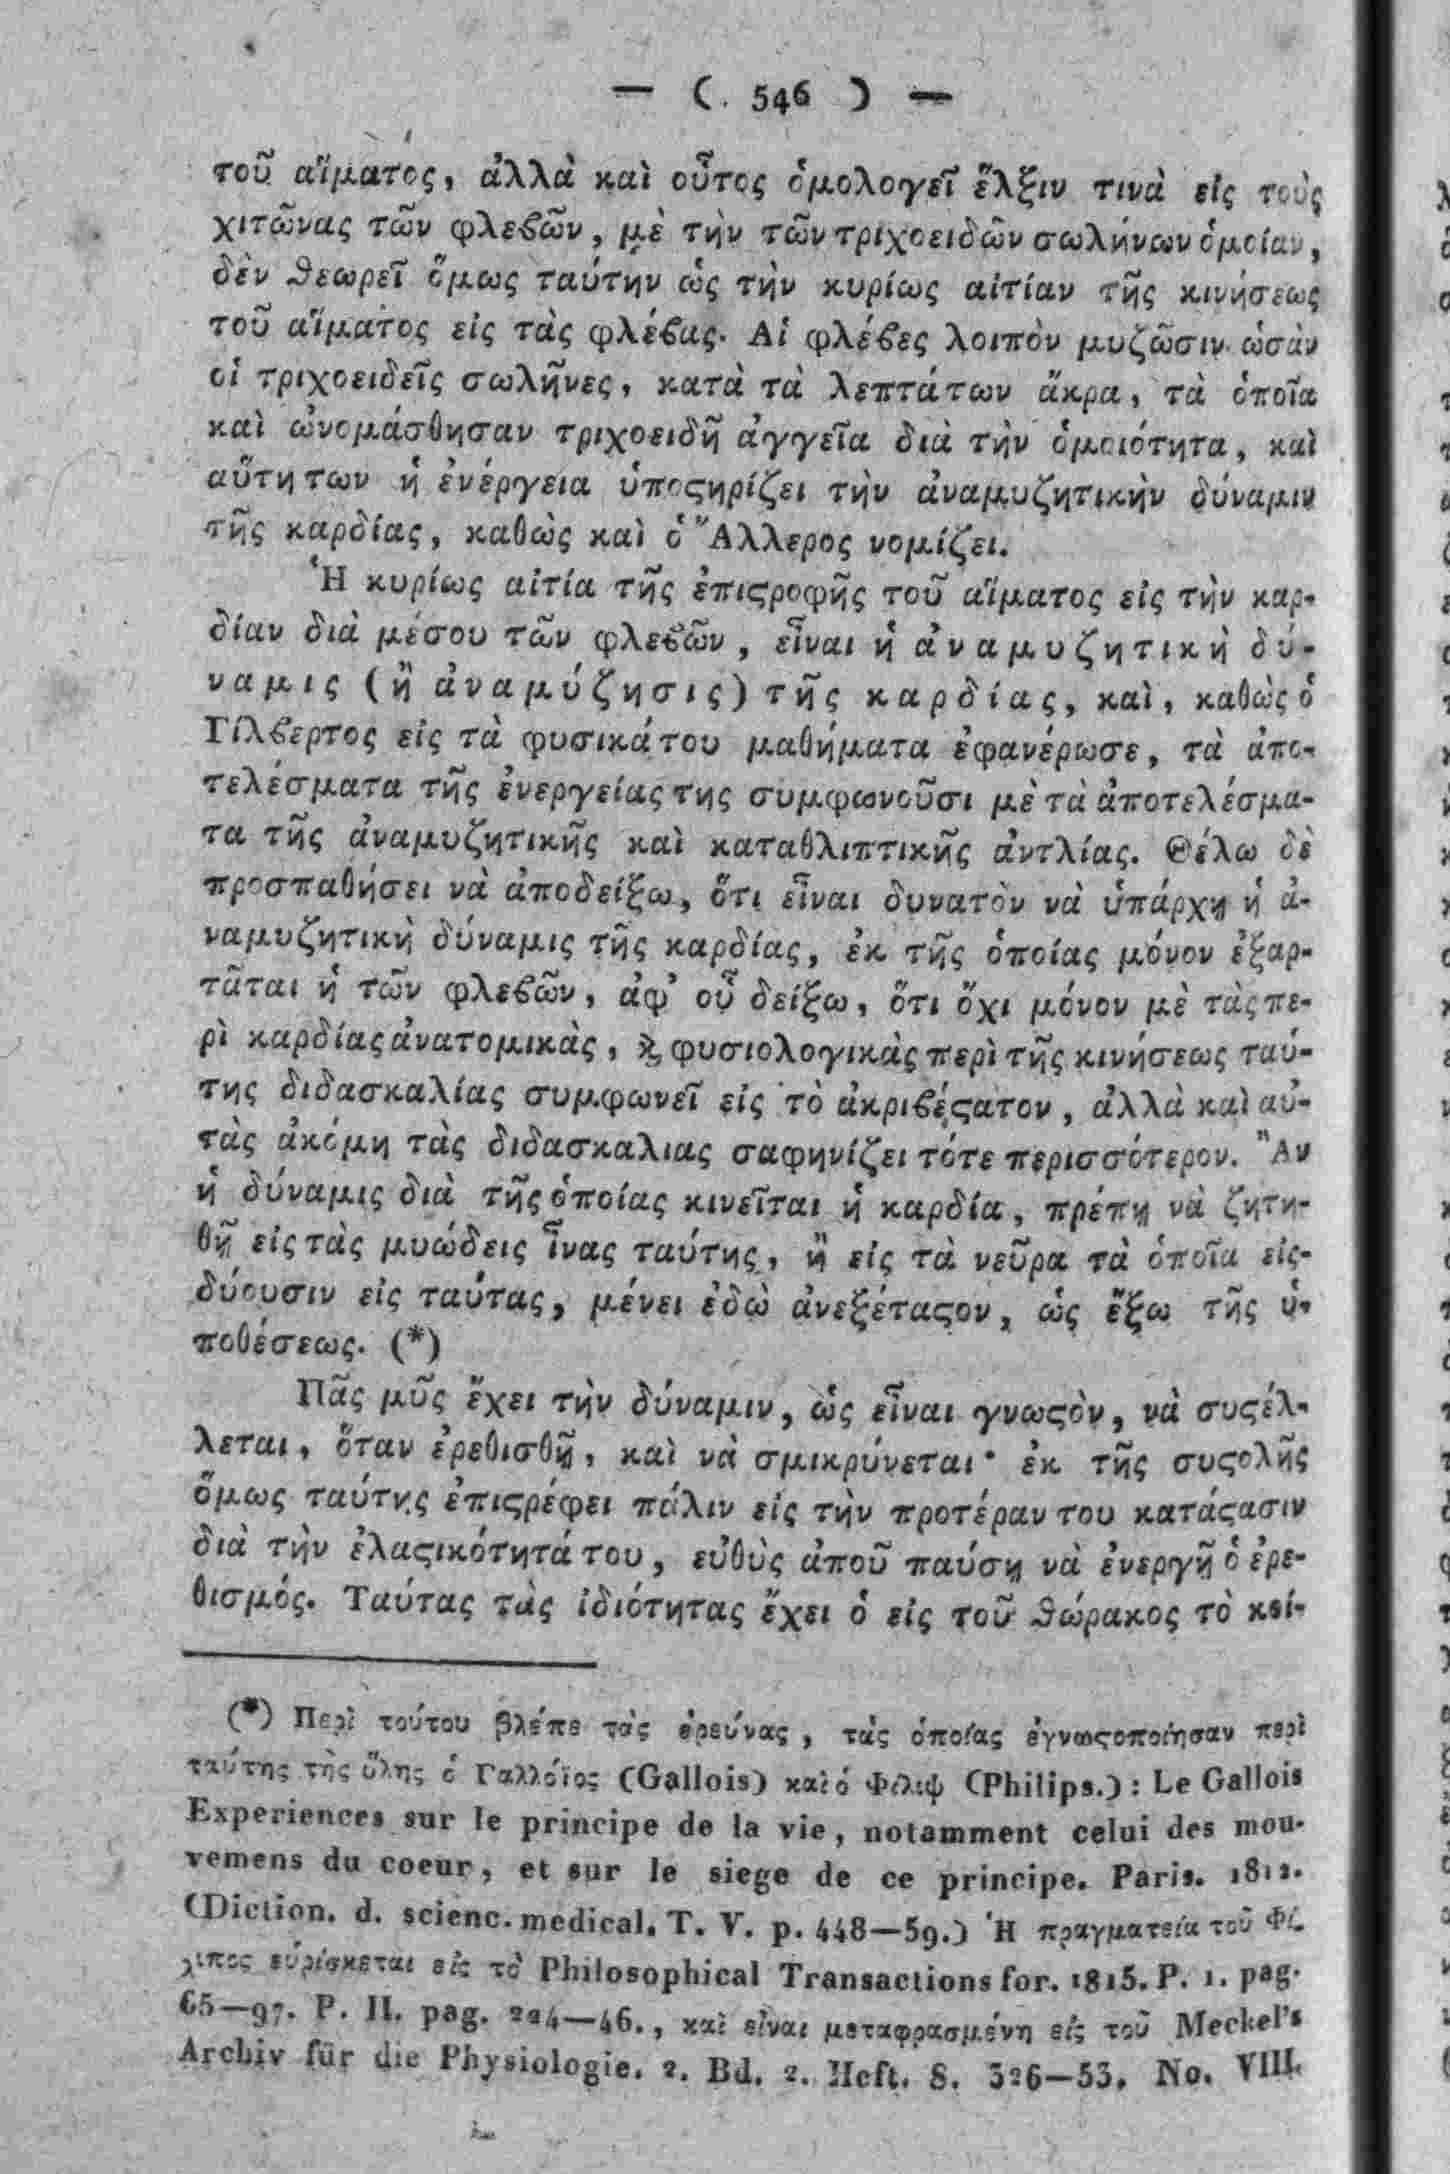 — ( 546 ) —
τοῦ αἵματος, ἀλλὰ καὶ οὗτος ὁμολογεῖ ἕλξιν τινὰ εἰς τοὺς
χιτῶνας τῶν φλεϐῶν, μὲ τὴν τῶν τριχοειδῶν σωλήνων ὁμοίαν,
δὲν ϑεωρεῖ ὅμως ταύτην ὡς τὴν κυρίως αἰτίαν τῆς κινήσεως
τοῦ αἵματος εἰς τὰς φλέϐας. Αἱ φλέϐες λοιπὸν μυζῶσιν ὡσὰν
οἱ τριχοειδεῖς σωλῆνες, κατὰ τὰ λεπτάτων ἄκρα, τὰ ὁποῖα
καὶ ὠνομάσθησαν τριχοειδῆ ἀγγεῖα διὰ τὴν ὁμοιότητα, καὶ
αὕτη των ἡ ἐνέργεια ὑποϛηρίζει τὴν ἀναμυζητικὴν δύναμιν
τῆς καρδίας, καθὼς καὶ ὁ Ἄλλερος νομίζει.
Ἡ κυρίως αἰτία τῆς ἐπιϛροφῆς τοῦ αἵματος εἰς τὴν καρ-
δίαν διὰ μέσου τῶν φλεϐῶν, εἶναι ἡ ἀναμυζητικὴ δύ-
ναμις (ἢ ἀναμύζησις) τῆς καρδίας, καὶ, καθὼς ὁ
Γίλϐερτος εἰς τὰ φυσικά του μαθήματα ἐφανέρωσε, τὰ ἀπο-
τελέσματα τῆς ἐνεργείας της συμφωνοῦσι μὲ τὰ ἀποτελέσμα-
τα τῆς ἀναμυζητικῆς καὶ καταθλιπτικῆς ἀντλίας. Θέλω δὲ
προσπαθήσει νὰ ἀποδείξω, ὅτι εἶναι δυνατὸν νὰ ὑπάρχῃ ἡ ἀ-
ναμυζητικὴ δύναμις τῆς καρδίας, ἐκ τῆς ὁποίας μόνον ἐξαρ-
τᾶται ἡ τῶν φλεϐῶν, ἀφ' οὗ δείξω, ὅτι ὄχι μόνον μὲ τὰς πε-
ρὶ καρδίας ἀνατομικὰς, ϗ φυσιολογικὰς περὶ τῆς κινήσεως ταύ-
της διδασκαλίας συμφωνεῖ εἰς τὸ ἀκριϐέϛατον, ἀλλὰ καὶ αὐ-
τὰς ἀκόμη τὰς διδασκαλιας σαφηνίζει τότε περισσότερον. Ἂν
ἡ δύναμις διὰ τῆς ὁποίας κινεῖται ἡ καρδία, πρέπῃ νὰ ζητη-
θῇ εἰς τὰς μυώδεις ἶνας ταύτης, ἢ εἰς τὰ νεῦρα τὰ ὁποῖα εἰς-
δύουσιν εἰς ταύτας, μένει ἐδὼ ἀνεξέταϛον, ὡς ἔξω τῆς ὑ-
ποθέσεως. (*)
Πᾶς μῦς ἔχει τὴν δύναμιν, ὡς εἶναι γνωϛὸν, νὰ συϛέλ-
λεται, ὅταν ἐρεθισθῇ, καὶ νὰ σμικρύνεται· ἐκ τῆς συϛολῆς
ὅμως ταύτης ἐπιϛρέφει πάλιν εἰς τὴν προτέραν του κατάϛασιν
διὰ τὴν ἐλαϛικότητά του, εὐθὺς ἀποῦ παύσῃ νὰ ἐνεργῇ ὁ ἐρε-
θισμός. Ταύτας τὰς ἰδιότητας ἔχει ὁ εἰς τοῦ ϑώρακος τὸ κοί-
(*) Περὶ τούτου βλέπε τὰς ἐρεύνας, τὰς ὁποίας ἐγνωϛοποίησαν περὶ
ταύτης τὴς ὕλης ὁ Γαλλόϊος (Gallois) καὶ ὁ Φίλιψ (Philips.): Le Gallois
Experiences sur le principe de la vie, notamment celui des mou-
vemens du coeur, et sur le siege de ce principe. Paris. 1812.
(Diction. d. scienc. medical. T. V. p. 448—59.) Ἡ πραγματεία τοῦ Φί-
λιπος εὑρίσκεται εἰς τὸ Philosophical Transactions for. 1815. P. 1. pag.
65—97. P. II. pag. 224—46., καὶ εἶναι μεταφρασμένη εἰς τοῦ Meckel's
Archiv für die Physiologie. 2. Bd. 2. Heft. S. 326—53. No. VIII.